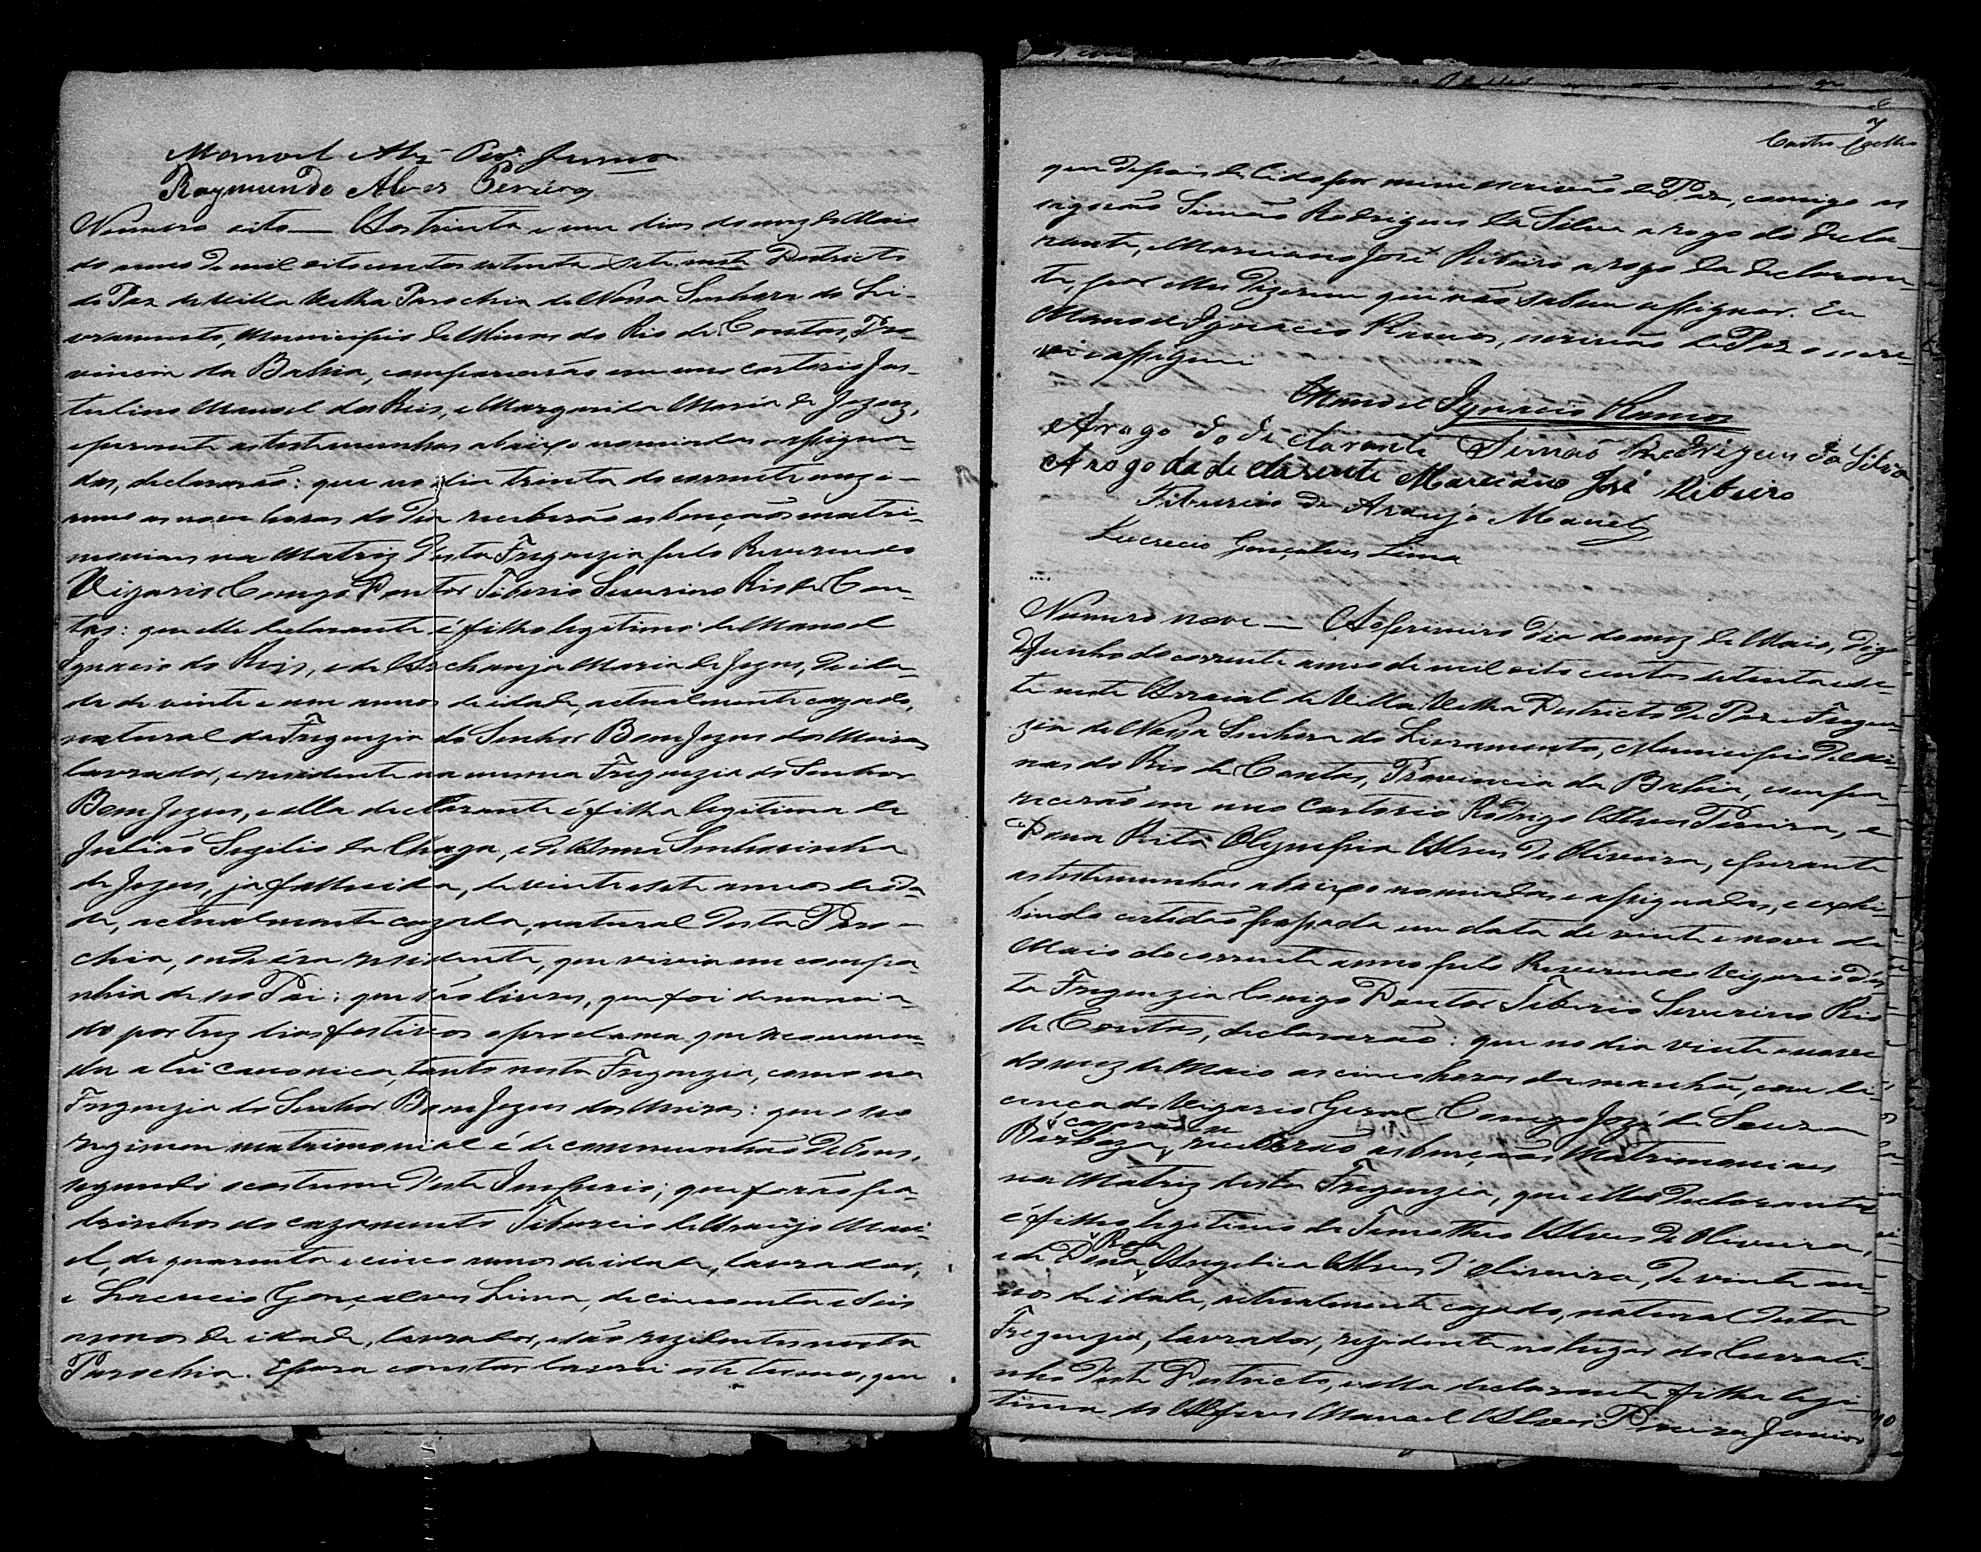 Manoel Alz Per.ª Junior
Raymundo Alves Pereira
Numero oito — Aos trinta e um dias do mez de Maio
do anno de mil oito centos setenta e sete neste Destricto
de Paz de Villa Velha Parochia de Nossa Senhora do Li-
vramento, Municipio de Minas do Rio de Contas, Pro-
vincia da Bahia, comparecerão em meo cartorio Jus-
tulino Manoel dos Reis, e Margarida Maria de Jezus,
e perante as testemunhas abaixo nomiadas e assigna-
das, declararão: que no dia trinta do corrente mez e
anno as nove horas do dia receberão as bençaõs matri-
moniaes na Matriz desta Freguezia pelo Reverendo
Vigario Conego Doutor Tiberio Severino Rio de Con-
tas: que elle declarante é filho legitimo de Manoel
Ignacio dos Reis, e de Archanja Maria de Jezus, de ida-
de de vinte e um annos de idade, actualmente cazado,
natural da Freguezia do Senhor Bom Jezus dos Meiras
lavrador, e residente na mesma Freguezia do Senhor
Bom Jezus, e ella declarante é filha legitima de
Julião da Chaga, e de Anna Senhorinha
de Jezus, ja fallecida, de vinte e sete annos de ida
de, actualmente cazada, natural desta Paro-
chia, onde éra residente, que vivia em compa-
nhia de seo Pai: que são livres, que foi denuncia-
do por trez dias festivos o proclama que recommen-
da a lei canonica, tanto nesta Freguezia, como na
Freguezia do Senhor Bom Jezus dos Meiras: que o seo
regimen matrimonial é de communhaõ de bens,
segundo o costume deste Imperio; que forão pa-
drinhos do cazamento Tiburcio de Araujo Maci-
el, de quarenta e cinco annos de idade, lavrador,
e Lucrecio Gonçalves Lima, de cincoenta e seis
annos de idade, lavrador, e são rezidentes nesta
Parochia. E para constar lavrei este termo, que
7
Castro Coelho
que depois de lido por mim escrivão de Paz, comigo as
signarão Simão Rodrigues da Silva a rogo do decla-
rante, e Marciano José Ribeiro a rogo da declaran
te, por elles dizerem que não sabem assignar. Eu
Manoel Ignacio Ramos, escrivão de Paz o escre-
vi e assignei
Manoel Ignacio Ramos
Arogo do declarante Simão Rodrigues da Silva
Arogo da declarente Marciano José Ribeiro
Tiburcio de Araujo Maciel
Lucrecio Gonçalves Lima
Numero nove — Ao primeiro dia do mez de Maio, digo
de Junho do corrente anno de mil oito centos setenta e se-
te neste Arraial de Villa Velha Destricto de Paz e Fregue-
zia de Nossa Senhora do Livramento, Municipio de Mi-
nas do Rio de Contas, Provincia da Bahia, compa-
recerão em meo Cartorio Rodrigo Alves Pereira, e
Dona Rita Olympia Alves de Oliveira, e perante
as testemunhas abaixo nomiadas e assignadas, e exhi-
bindo certidão passada em data de vinte e nove de
Maio do corrente anno pelo Reverendo Vigario des-
ta Freguezia Conego Doutor Tiberio Severino Rio
de Contas, declararão: que no dia vinte e nove
do mez de Maio as cinco horas da manhã, com li-
cença do Vigario Geral Conego Jozé de Souza
Barboza, receberão as bençaõs Matrimoniaes
na Matriz desta Freguezia, que elle declarante
é filho legitimo de Timotheo Alves de Oliveira,
e de Dona Angelica Alves d'Oliveira, de vinte an-
nos de idade, actualmente cazado, natural desta
Freguezia, lavrador, rezidente no lugar do Currali-
nho deste Destricto, e ella declarante filha legi-
tima do Alferes Manoel Alves Pereira Junior